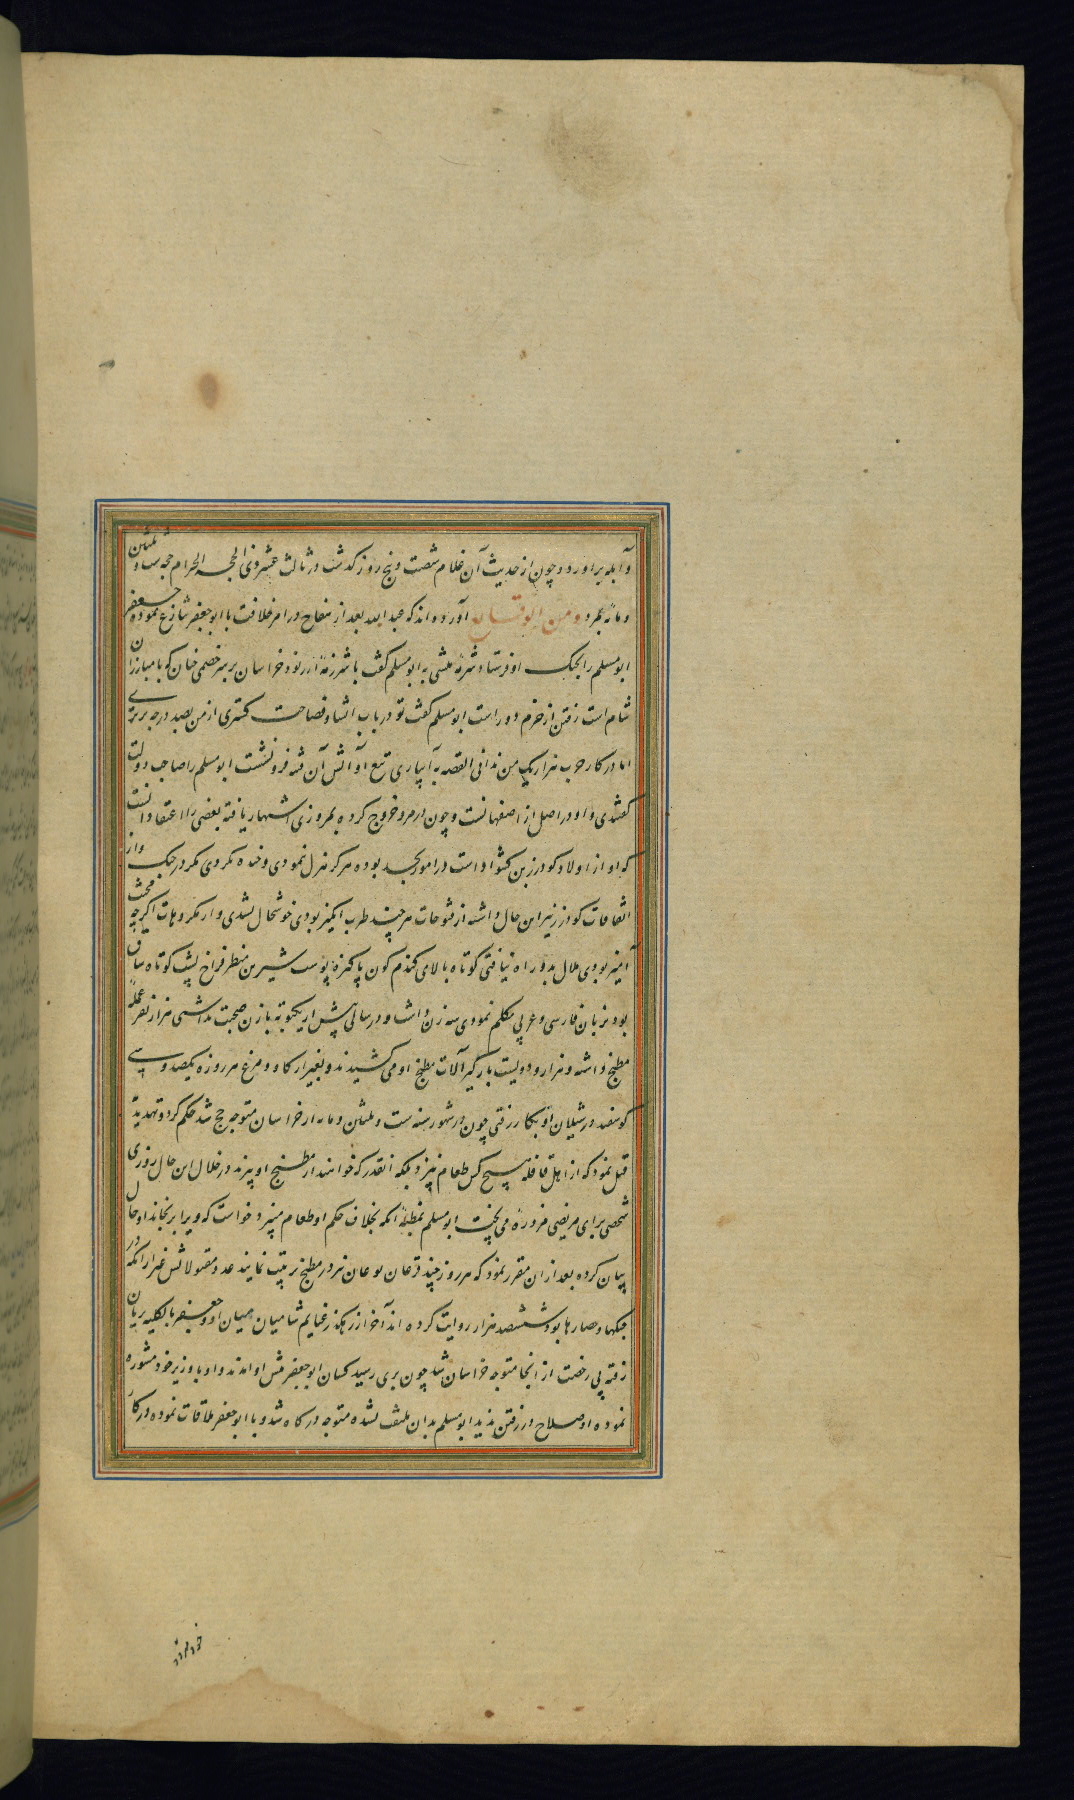 و آبله براورد و چون از حدیث آن غلام شصت و پنج روز گذشت در ثالث عشر ذی الحجه الحرام حجه ست و ثلثین
و مائه بمرد و من الوقایع آورده‌اند که عبد الله بعد از سفاح در امر خلافت با ابو جعفر نزاع نموده جعفر
ابو مسلم را بجنک او فرستاد به ابو مسلم کفت با خراسان بر سر خصمی چنان که با مبارزان
شام است رفتن از حزم دور است ابو مسلم کفت تو در باب انشا و فصاحت کمتری از من بصد درجه برتری
اما در کار حرب هزار یک من ندانی القصه به آبیاری تیغ او آتش آن فتنه فرو نشست ابو مسلم را صاحب دولت
کفتندی و او در اصل از اصفهانست و چون در مرو خروج کرده بمروزی اشتهار یافته بعضی را اعتقاد آنست
که او از اولاد کودرز بن کشواد است در امور بجد بوده هرکز هزل نمودی و خنده نکردی مکر در جنک و از
اتفاقات کودرز نیز این حال داشته از فتوحات هر چند طرب انکیز بودی خوشحال نشدی و از مکروهات اکرچه محنت
آمیز بودی ملال بدو راه نیافتی کوتاه بالای کندم کون پاکیزه پوست شیرین منظر فراخ پیشانی کوتاه ساق
بود بزبان فارسی و عربی تکلم نمودی سه زن داشت و در سالی بیش از یکنوبت با زن صحبت نداشتی هزار نفر عمله
مطبخ داشته و هزار و دویست بارگیر آلات مطبخ او می کشیدند و بغیر از کاو و مرغ هر روزه یکصد و سی
کوسفند در شیلان او بکار رفتی چون در شهور سنه ست و ثلثین و مائه از خراسان متوجه حج شد حکم کرد و تهدید
قتل نمود که از اهل قافله هیچ کس طعام نپزد بلکه آنقدر که خواهند از مطبخ او پزند در خلال این حال روزی
شخصی برای مریضی مزوره می پخت ابو مسلم بمظنه آنکه بخلاف حکم او طعام میپزد خواست که ویرا برنجاند او حال
بیان کرده بعد از آن مقرر نمود که هر روز چند قزغان نیز در مطبخ ترتیب نمایند عدد مقتولانش غیر از آنکه در
جنکها و حصارها بود ششصد هزار روایت کرده‌اند آخر از رهکذر غنایم شامیان میان او و جعفر بالکلیه بزیان
رفته بی رخصت از آنجا متوجه خراسان شد چون بری رسید کسان ابو جعفر پیش او آمدند و او با وزیر خود مشوره
نموده او صلاح در رفتن ندید ابو مسلم بدان ملتفت نشده متوجه درکاه شد و با ابو جعفر ملاقات نموده در کار